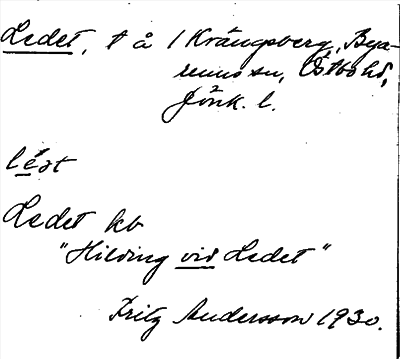 Ledet, t å 1 Krängsberg, Bya-
rums sn, Östbo hd,
Jönk. l.
lést
Ledet kb
"Hilding vid Ledet"
Fritz Andersson 1930.